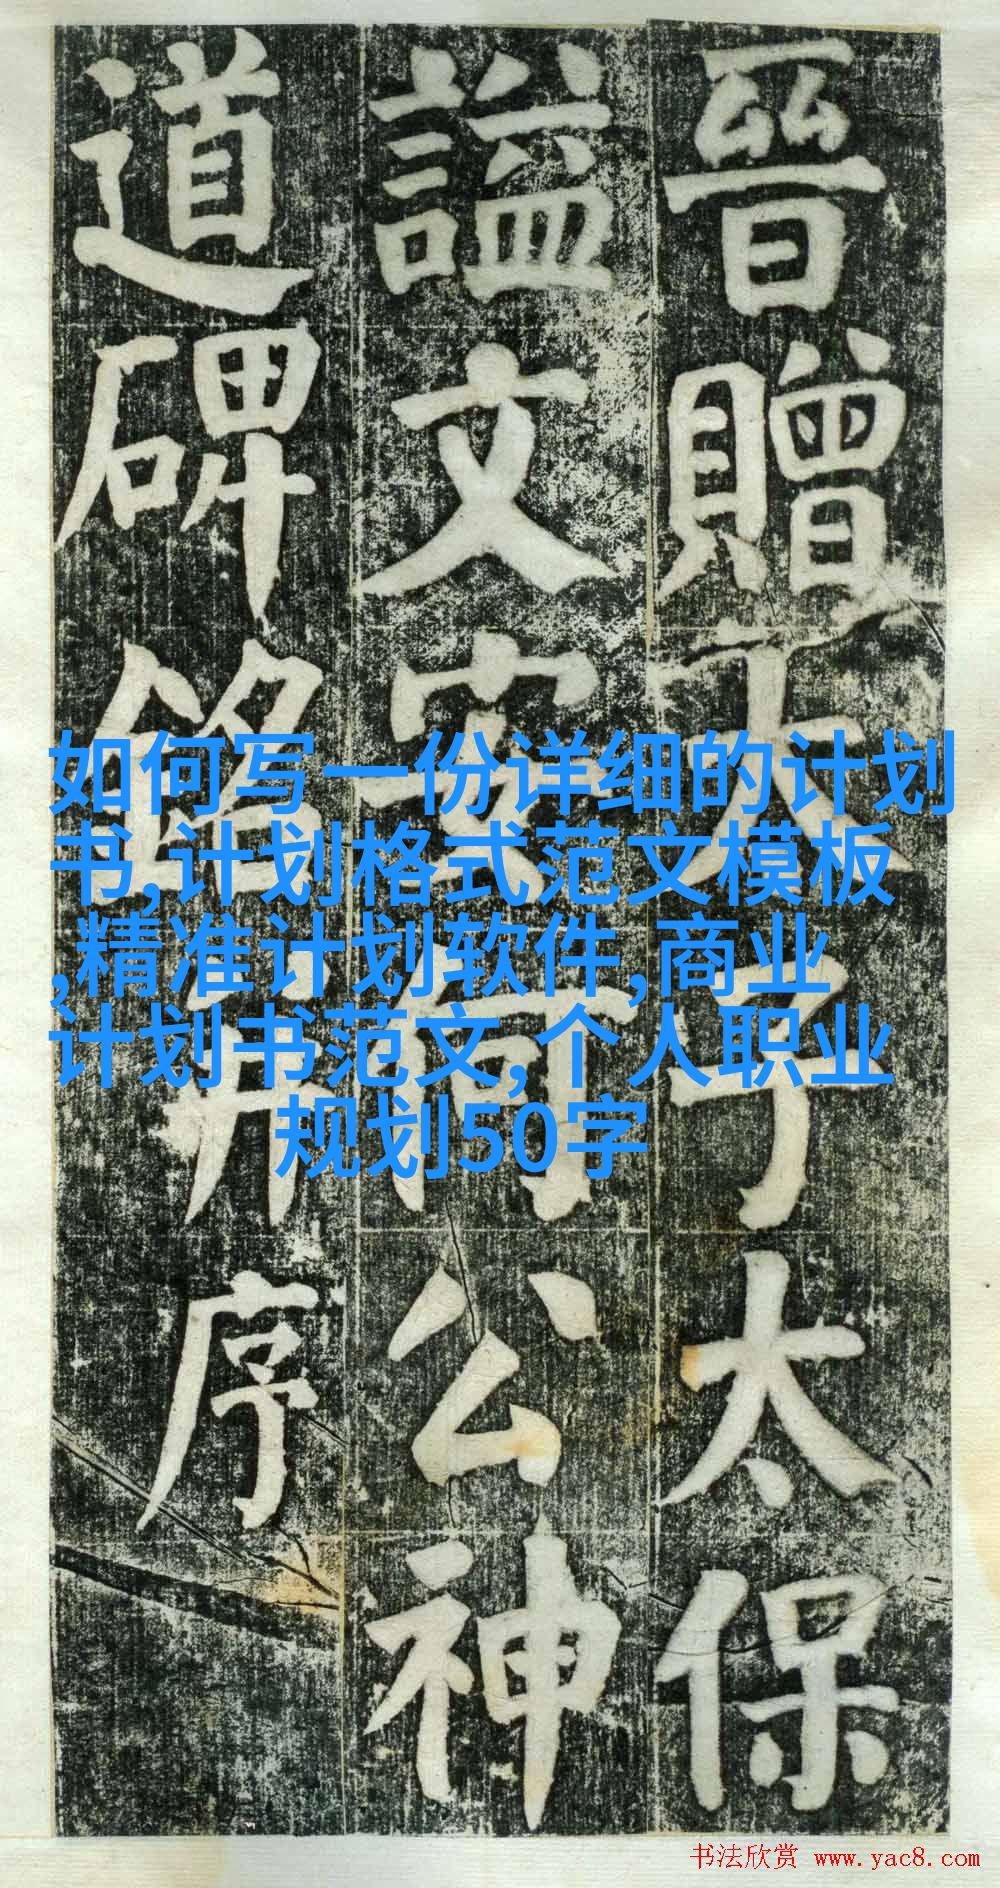 晉贈太子太保
謚文安何公神
道碑銘并序
如何写一份详细的计划
书,计划格式范文模板
,精准计划软件,商业
计划书范文,个人职业
规划50字
书法欣赏 www.yac8.com